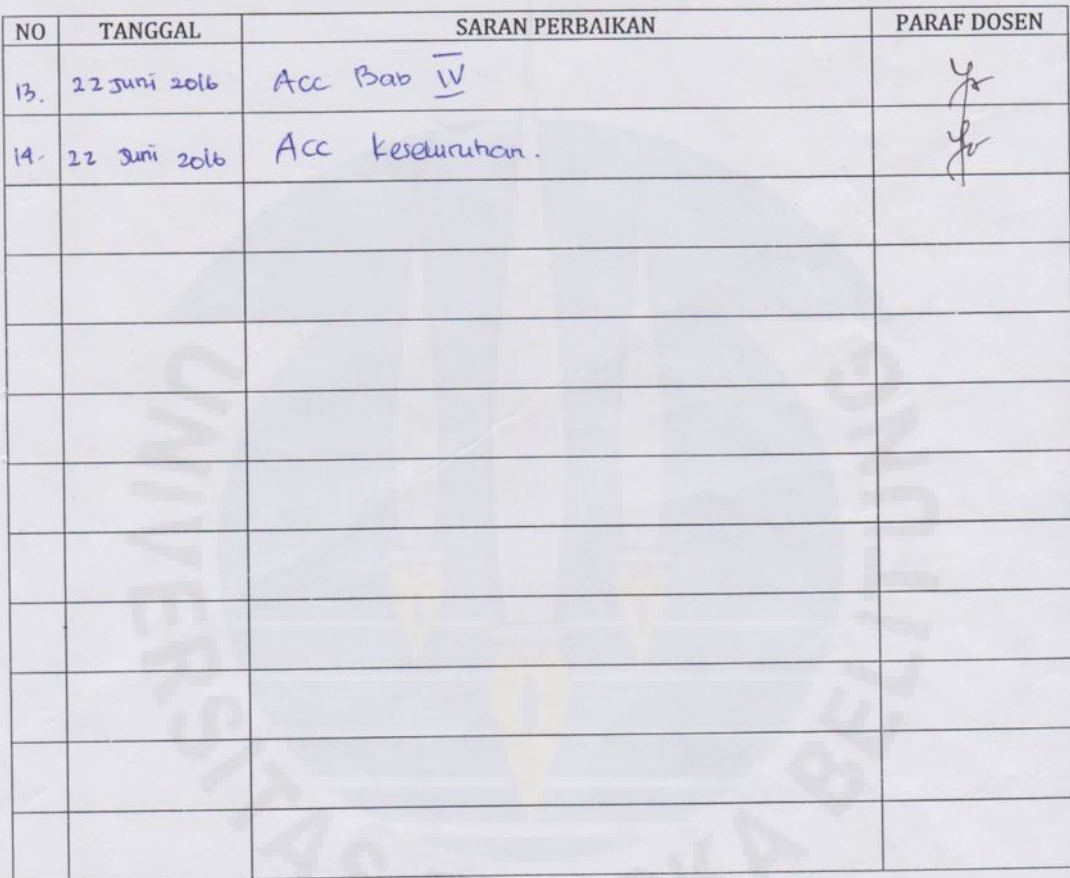 NO TANGGAL SARAN PERBAIKAN PARAF DOSEN
13. 22 Juni 2016 Acc Bab IV
14. 22 Juni 2016 Acc Keseluruhan.
UNIVERSITAS BELITUNG